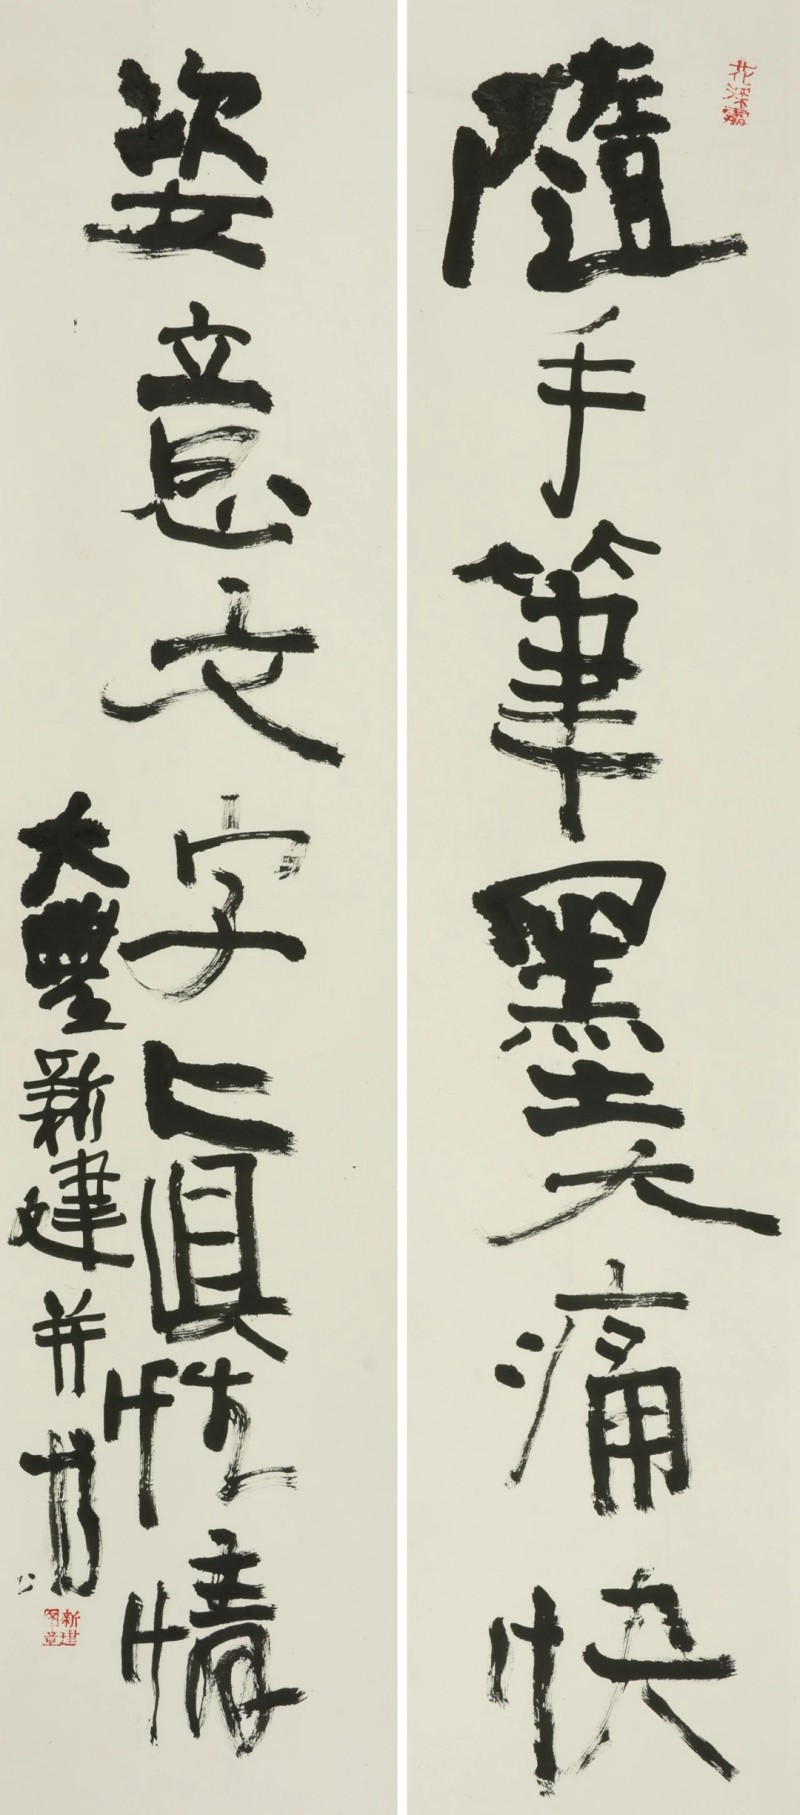 隨手筆墨大痛快
姿意文字眞性情
大豐新建并
花深
新建